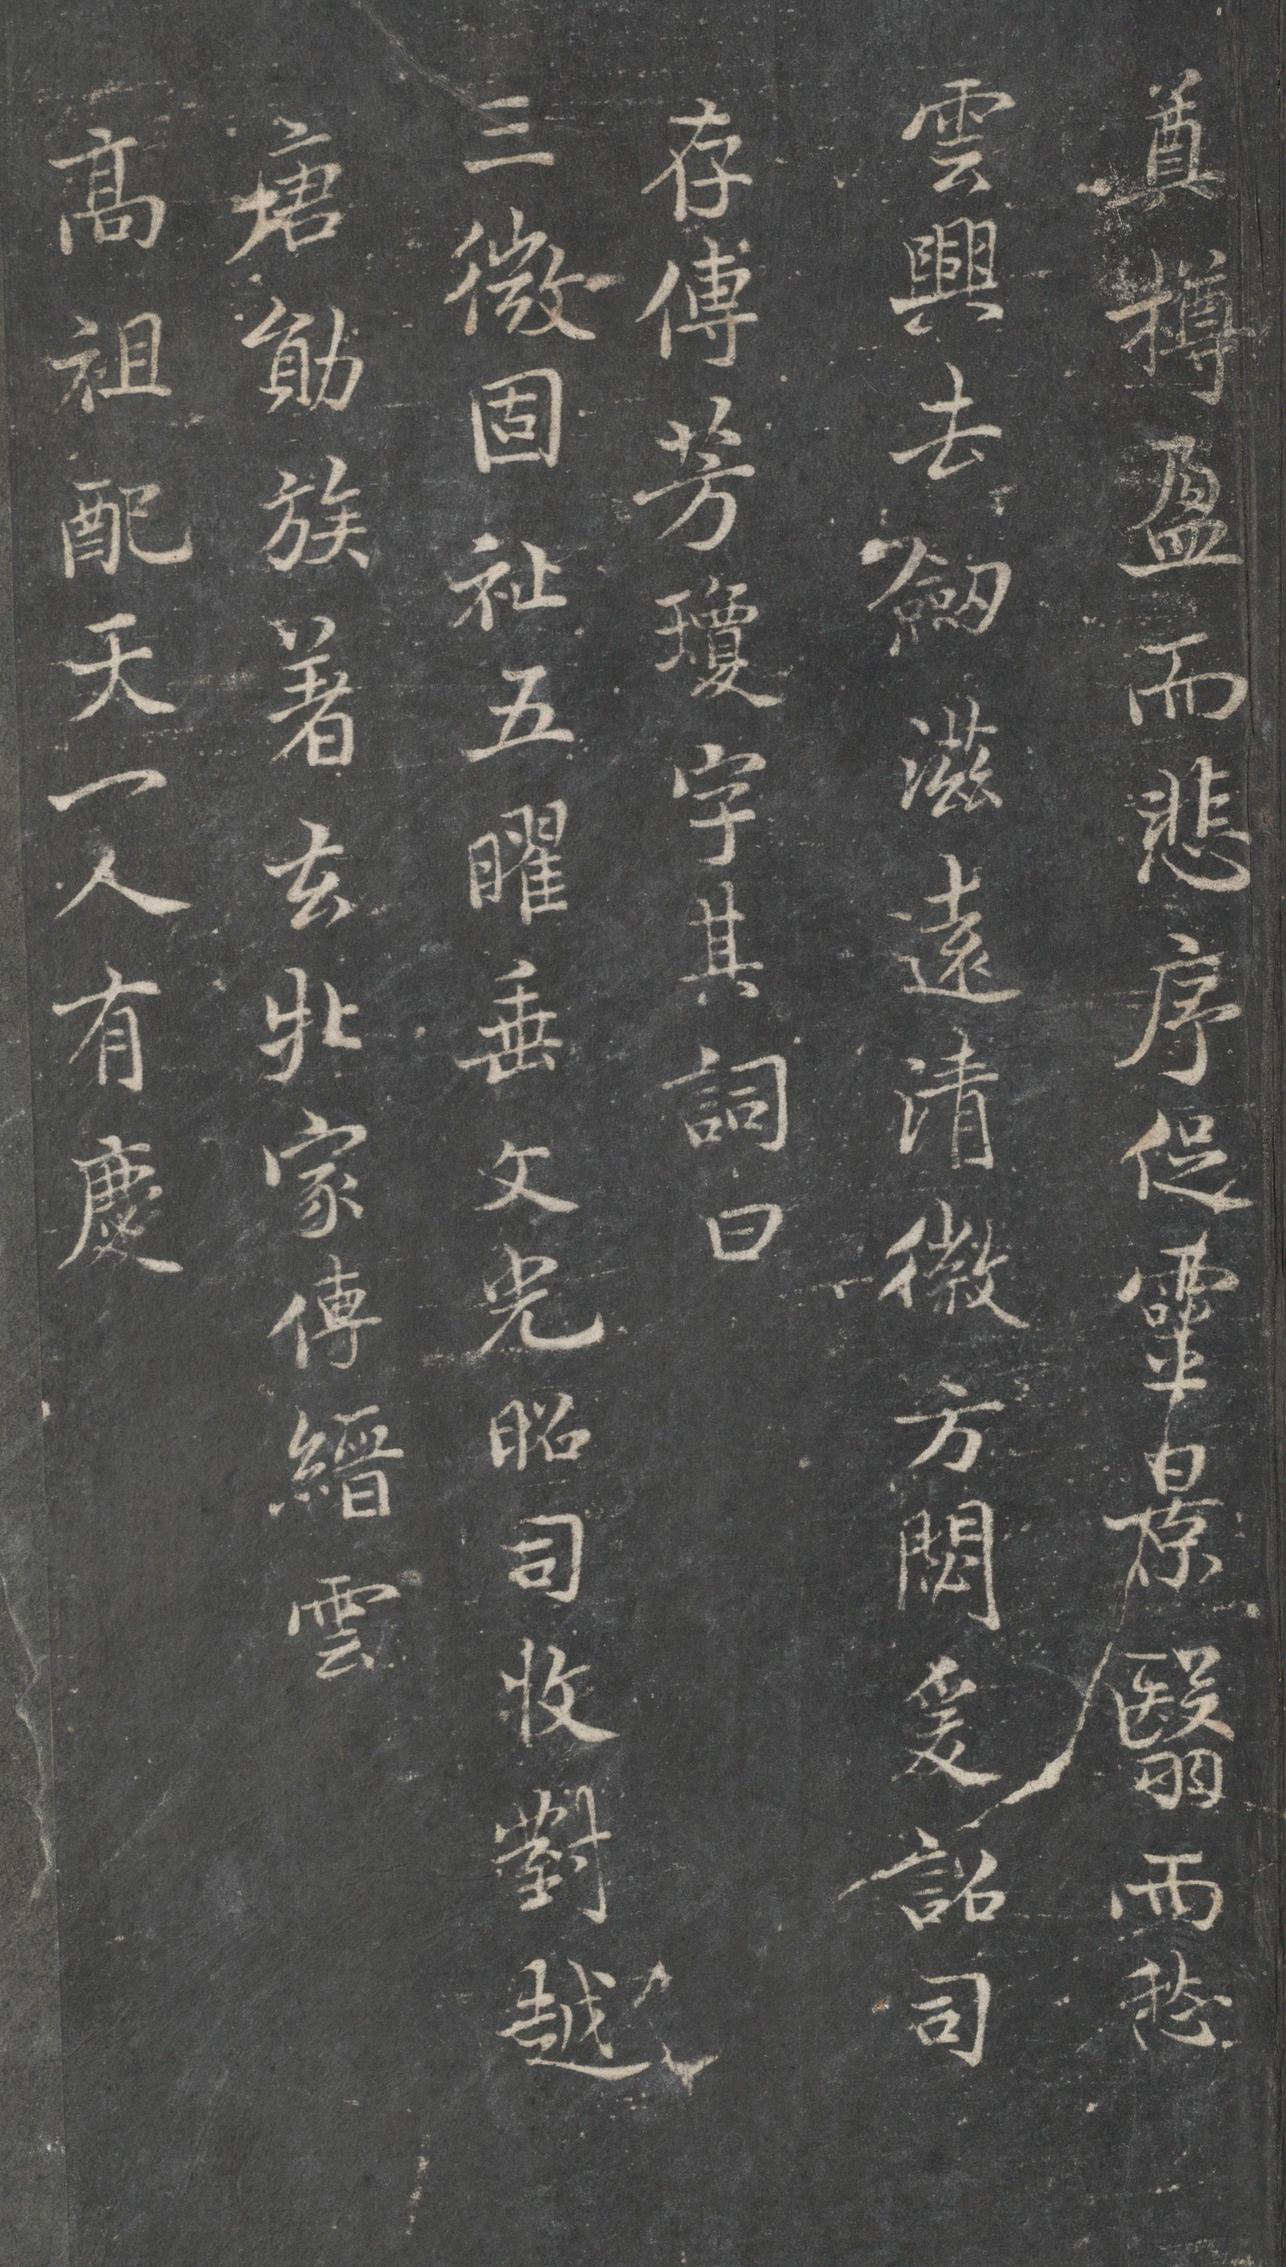 奠樽盈而悲序促靈景翳而愁
雲興去劒滋遠清徽方閟爰詔司
存傳芳瓊字其詞曰
三微固祉五曜垂文光昭司牧對越
唐勛族著玄牝家傳縉雲
高祖配天一人有慶